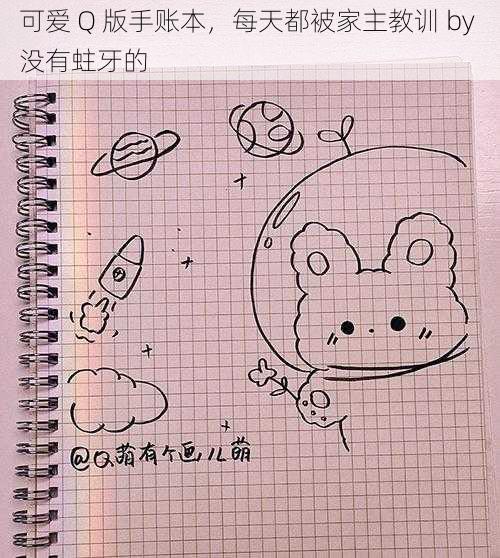 可爱 Q 版手账本，每天都被家主教训 by
没有蛀牙的
@Q萌有个画儿萌